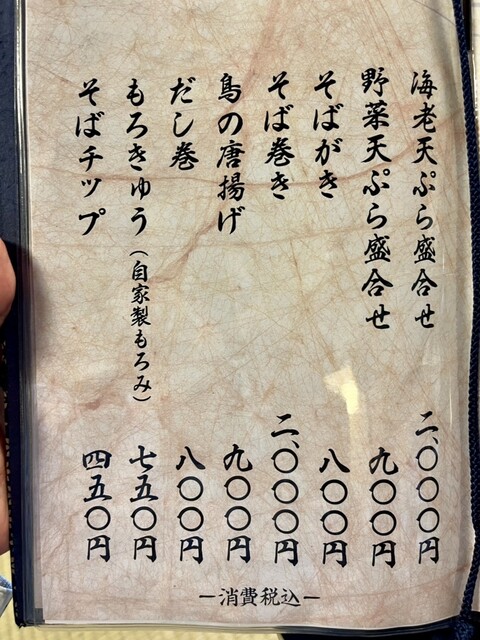 海老天ぷら盛合せ 二、〇〇〇円
野菜天ぷら盛合せ 九〇〇円
そばがき 八〇〇円
そば巻き 二、〇〇〇円
鳥の唐揚げ 九〇〇円
だし巻 八〇〇円
もろきゅう（自家製もろみ） 七五〇円
そばチップ 四五〇円
ー消費税込ー